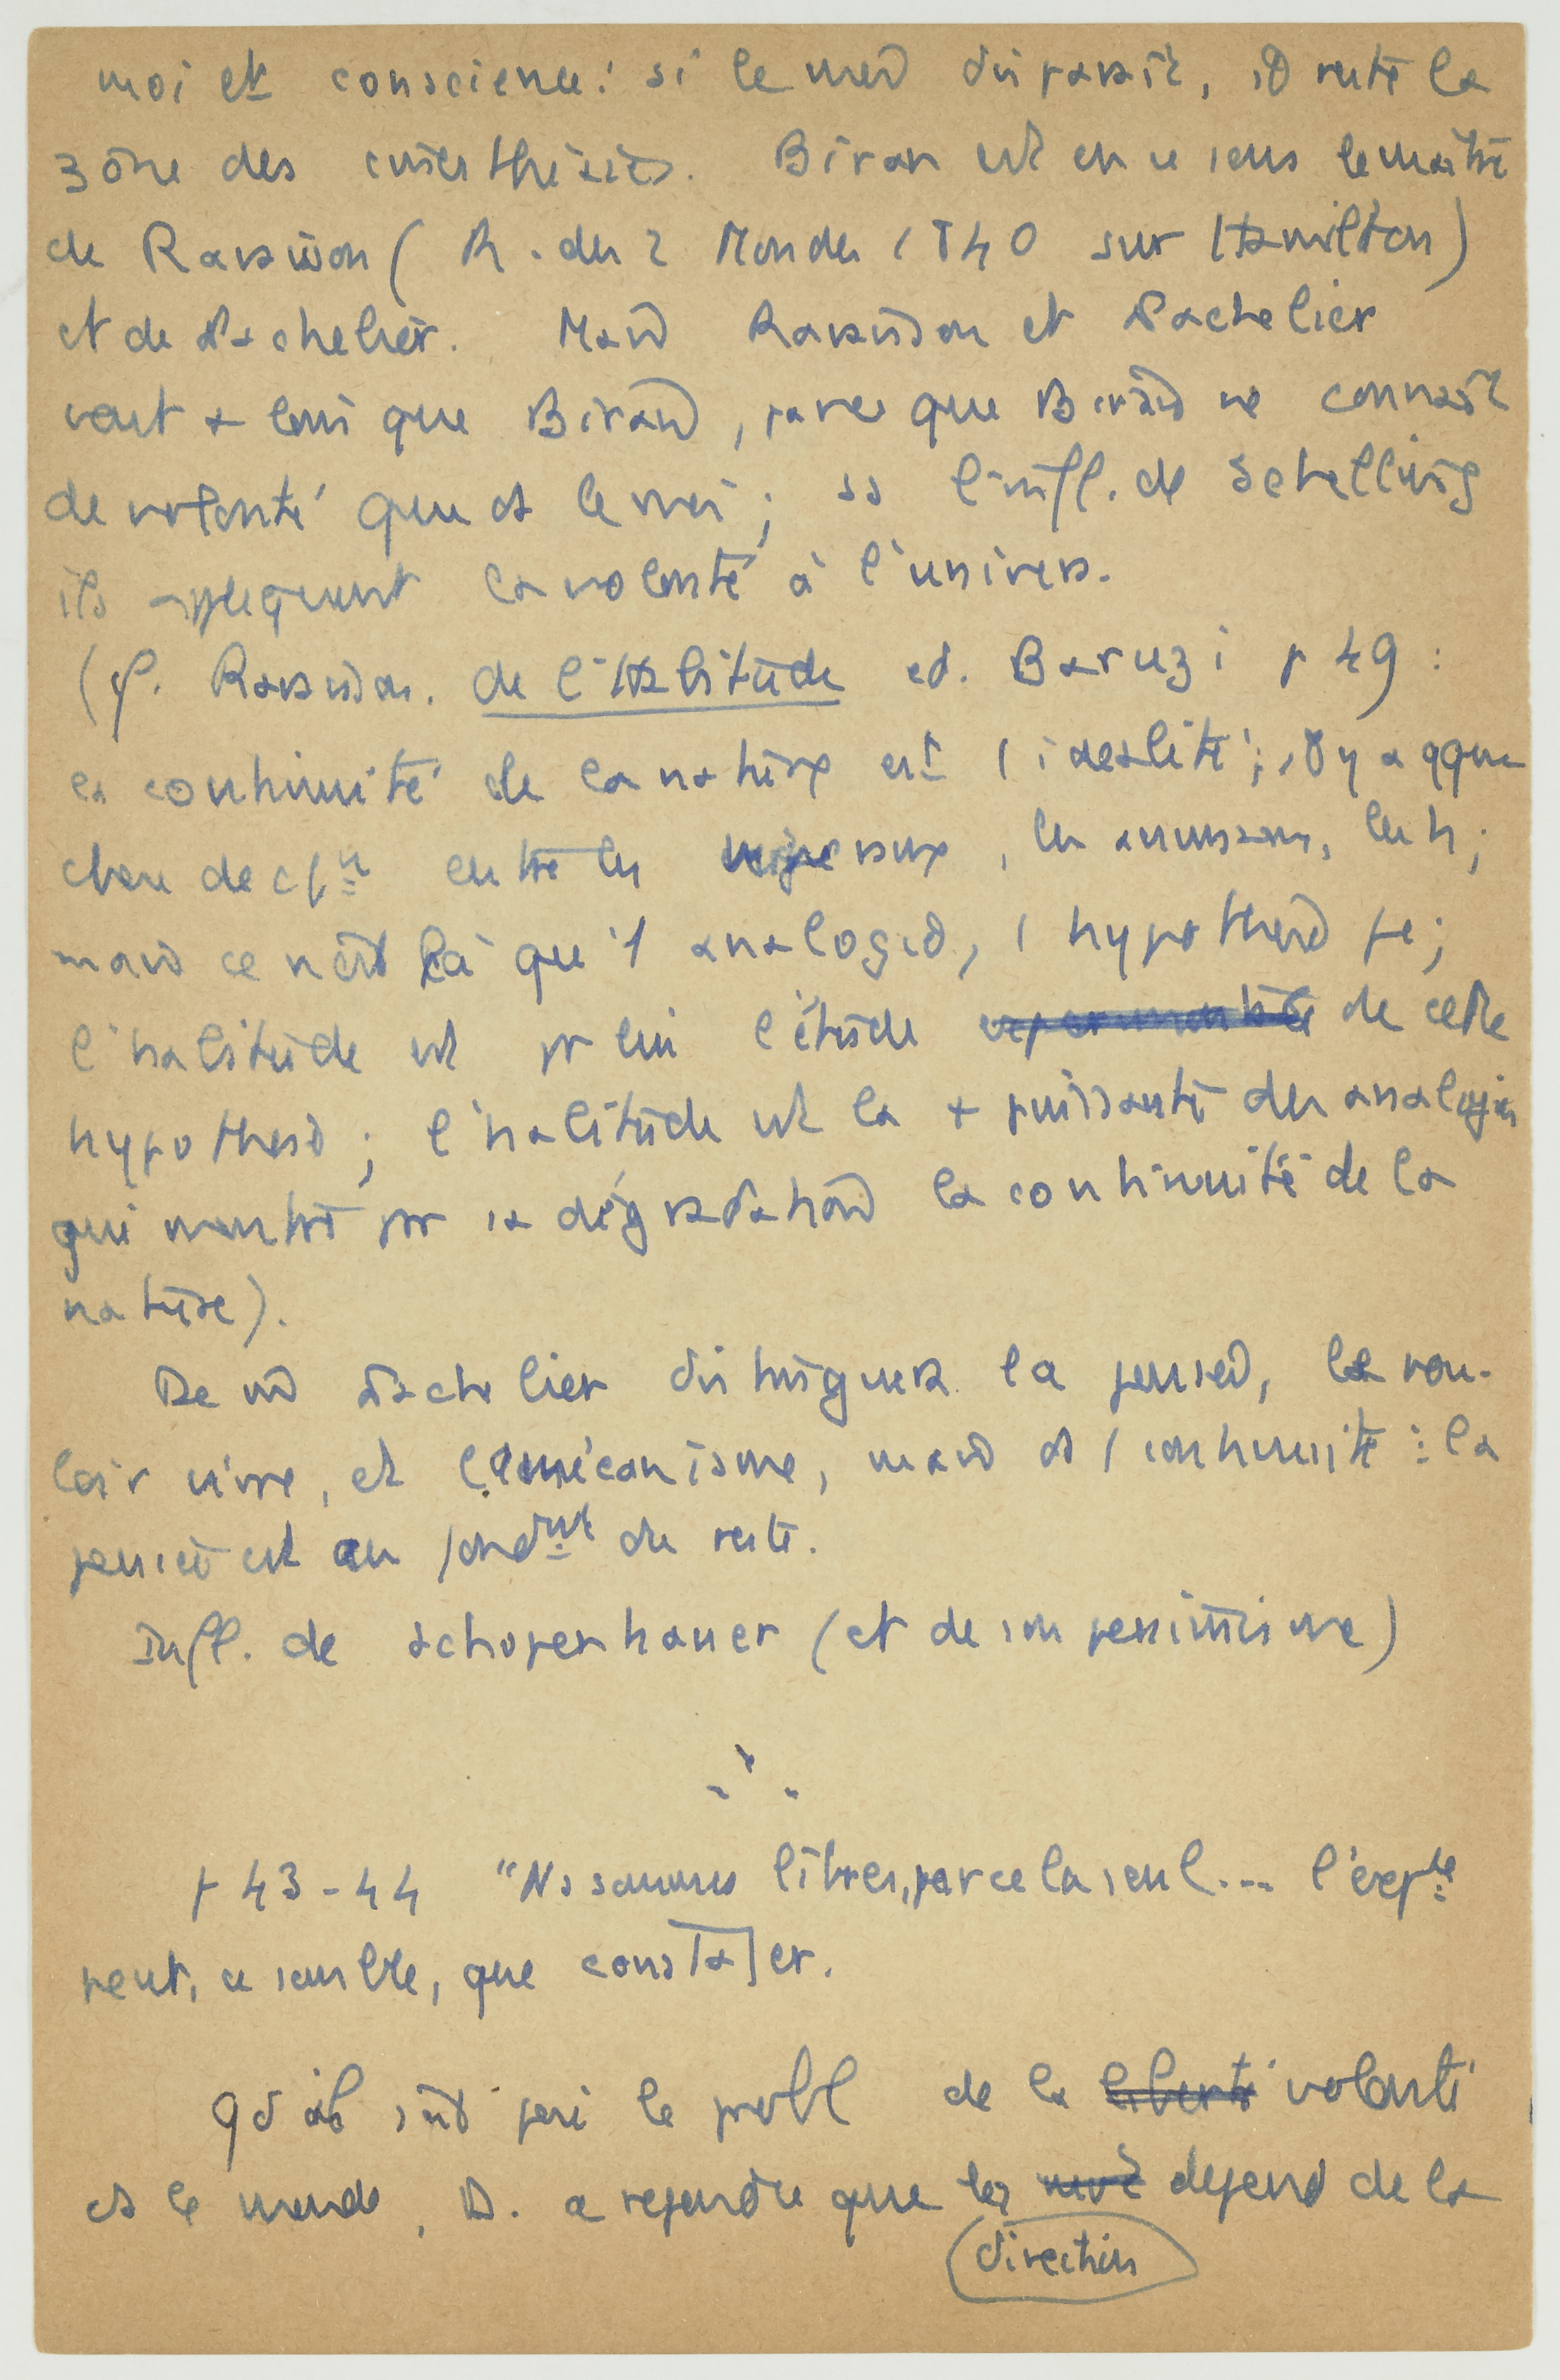 moi et conscience: si le moi disparaît, il reste la
zône des cénesthésies. Biran est en ce sens le maître
de Ravaisson ( R. des 2 Mondes 1840 sur Hamilton)
et de Lachelier. Mais Ravaisson et Lachelier
vont + loin que Biran, parce que Biran ne connaît
de volonté que ds le moi; ss l'infl. de Schelling
ils appliquent la volonté à l'univers.
(cf. Ravaisson. de l'Habitude ed. Baruzi p 49 :
la continuité de la nature est 1 idéalité; il y a qque
chose de c/n entre les végétaux, les animaux, les h;
mais ce n'est là qu'1 analogie, 1 hypothèse
l'habitude est pr lui l'étude de cette
hypothèse; l'habitude est la + puissante des analogies
qui montre par sa dégradation la continuité de la
nature).
De là Lachelier distinguera la pensée, le vou-
loir vivre, et le mécanisme, mais ds 1 continuité : la
pensée est au fondnt du reste.
Infl. de Schopenhauer (et de son pessimisme)
p 43-44 "Ns sommes libres, par cela seul... l'expce
peut, ce semble, que constater.
Qd il s'est posé le probl de la liberté volonté
ds le monde, D. a répondu que la depend de la
direction